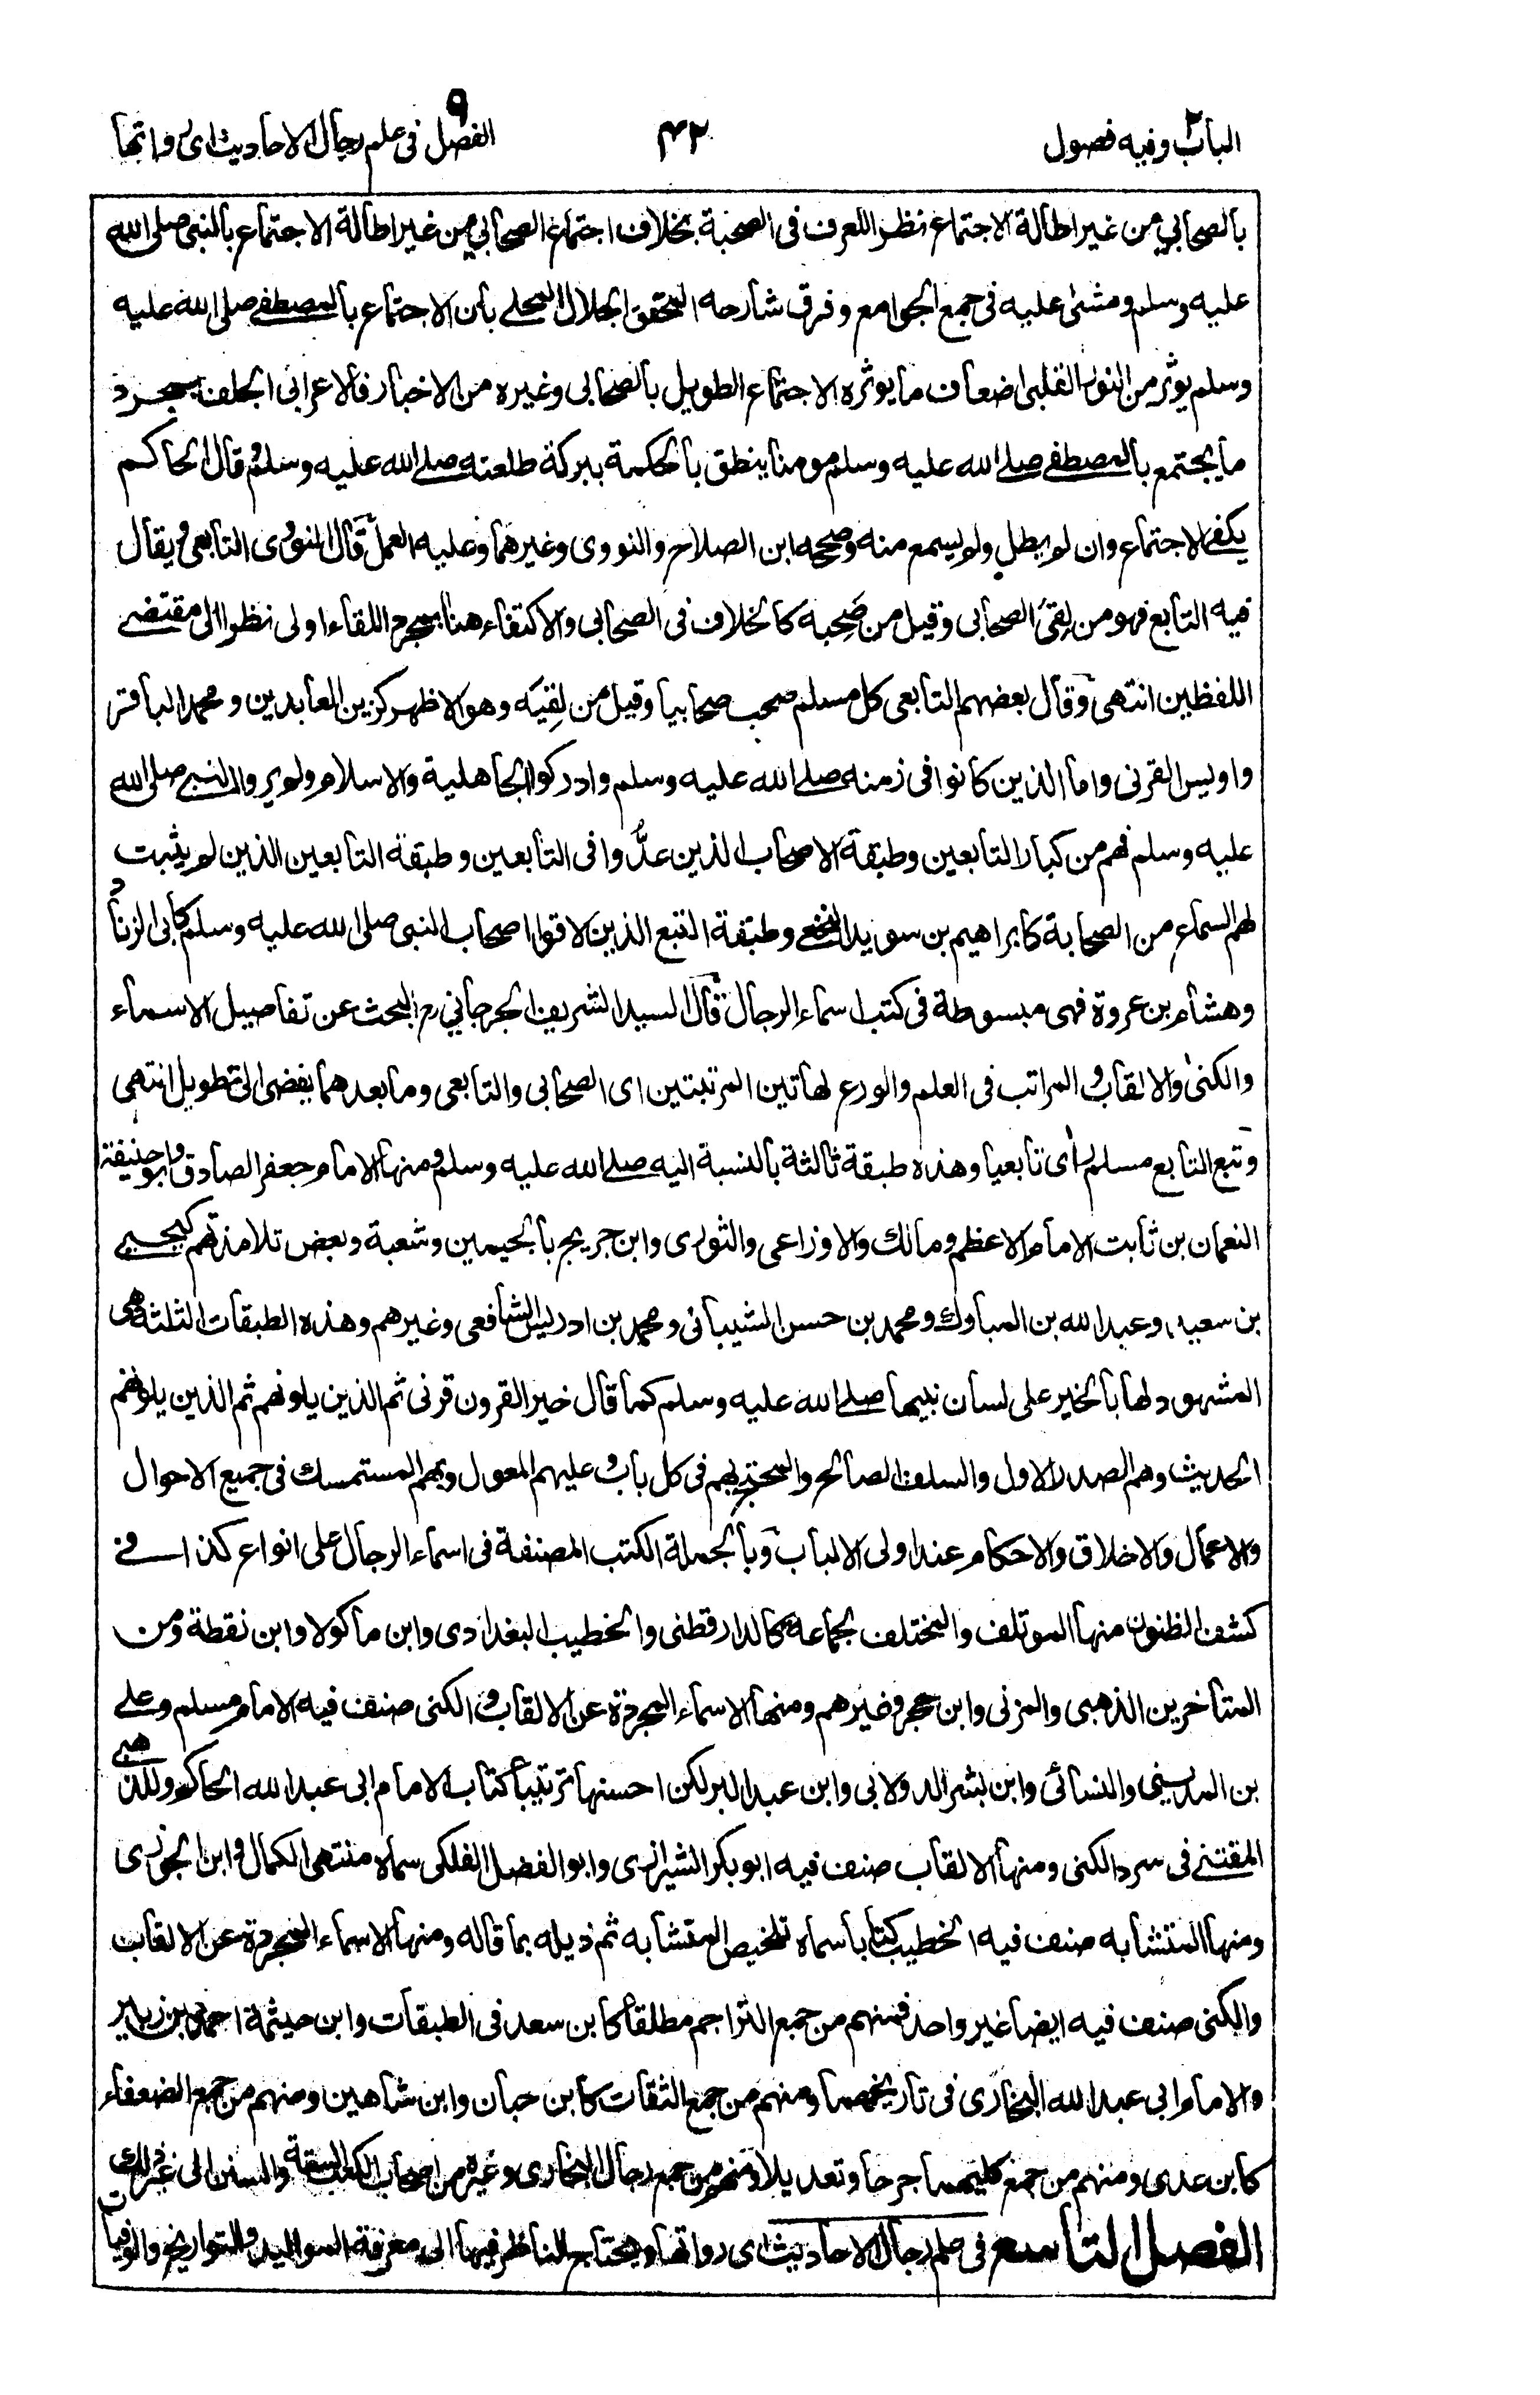 الباب ٢ وفيه فصول
٤٢
الفصل ٩ فى علم رجال الاحاديث اى رواتها
بالصحابي من غير اطالة الاجتماع نظرا للعرف فى الصحبة بخلاف اجتماع الصحابي من غير اطالة الاجتماع بالنبى صلى الله
عليه وسلم ومشى عليه فى جمع الجوامع وفرق شارحه المحقق الجلال المحلے بان الاجتماع بالمصطفے صلى الله عليه
وسلم يوثر من النور القلبى اضعاف ما يوثره الاجتماع الطويل بالصحابى وغيره من الاخيار فالاعرابى الجلف بمجرد
ما يجتمع بالمصطفے صلے الله عليه وسلم مومنا ينطق بالحكمة ببركة طلعته صلے الله عليه وسلم وقال الحاكم
يكفے الاجتماع وان لم يطل ولم يسمع منه وصححه ابن الصلاح والنووى وغيرهما وعليه العمل قال النووى التابعى ويقال
فيه التابع فهو من لقىَ الصحابى وقيل من صَحِبه كالخلاف فى الصحابى والاكتفاء هنا بمجرد اللقاء اولى نظرا الى مقتضے
اللفظين انتهى وقال بعضهم التابعى كل مسلم صحب صحابيا وقيل من لقيَه وهو الاظهر كزين العابدين ومحمد الباقر
واويس القرنى واما الذين كانوا فى زمنه صلے الله عليه وسلم وادركوا الجاهلية والاسلام ولم يروا النبى صلى الله
عليه وسلم فهم من كبار التابعين وطبقة الاصحاب الذين عدُّوا فى التابعين وطبقة التابعين الذين لم يثبت
لهم السماع من الصحابة كابراهيم بن سويد النخعے وطبقة التبع الذين لاقوا اصحاب النبى صلى الله عليه وسلم كابى الزناد
وهشام بن عروة فهى مبسوطة فى كتب اسماء الرجال قال السيد الشريف الجرجاني رح البحث عن تفاصيل الاسماء
والكنى والالقاب والمراتب فى العلم والورع لهاتين المرتبتين اى الصحابى والتابعى وما بعدهما يفضى الى تطويل انتهى
وتبع التابع مسلم راى تابعيا وهذه طبقة ثالثة بالنسبة اليه صلے الله عليه وسلم ومنها الامام جعفر الصادق وابو حنيفة
النعمان بن ثابت الامام الاعظم ومالك والاوزاعى والثورى وابن جريج بالجيمين وشعبة وبعض تلامذتهم كيحيے
بن سعيد وعبد الله بن المبارك ومحمد بن حسن الشيبانى ومحمد بن ادريس الشافعى وغيرهم وهذه الطبقات الثلثة هى
المشهود لها بالخير على لسان نبيها صلے الله عليه وسلم كما قال خير القرون قرنى ثم الذين يلونهم ثم الذين يلونهم
الحديث وهم الصدر الاول والسلف الصالح والمحتج بهم فى كل باب وعليهم المعول وبهم المستمسك فى جميع الاحوال
والاعمال والاخلاق والاحكام عند اولى الالباب وبالجملة الكتب المصنفة فى اسماء الرجال على انواع كذا فے
كشف الظنون منها الموتلف والمختلف لجماعة كالدارقطنى والخطيب البغدادى وابن ماكولا وابن نقطة ومن
المتاخرين الذهبى والمزنى وابن حجر وغيرهم ومنها الاسماء المجردة عن الالقاب والكنى صنف فيه الامام مسلم وعلے
بن المدينى والنسائى وابن بشر الدولابى وابن عبد البر لكن احسنها ترتيبا كتاب الامام ابى عبد الله الحاكم وللذهبے
المقتنے فى سرد الكنى ومنها الالقاب صنف فيه ابو بكر الشيرازى وابو الفضل الفلكى سماه منتهى الكمال وابن الجوزى
ومنها المتشابه صنف فيه الخطيب كتابا سماه تلخيص المتشابه ثم ذيله بما قاله ومنها الاسماء المجردة عن الالقاب
والكنى صنف فيه ايضا غير واحد فمنهم من جمع التراجم مطلقا كابن سعد فى الطبقات وابن حيثمة احمد بن زبير
والامام ابى عبد الله البخارى فى تاريخهما ومنهم من جمع الثقات كابن حبان وابن شاهين ومنهم من جمع الضعفاء
كابن عدى ومنهم من جمع كليهما جرحا وتعديلا ومنهم من جمع رجال البخارى وغيره من اصحاب الكتب الستة والسنن الى غير ذلك
الفصل التاسع فى علم رجال الاحاديث اى رواتها ويحتاج الناظر فيها الى معرفة المواليد والتواريخ والوفيات